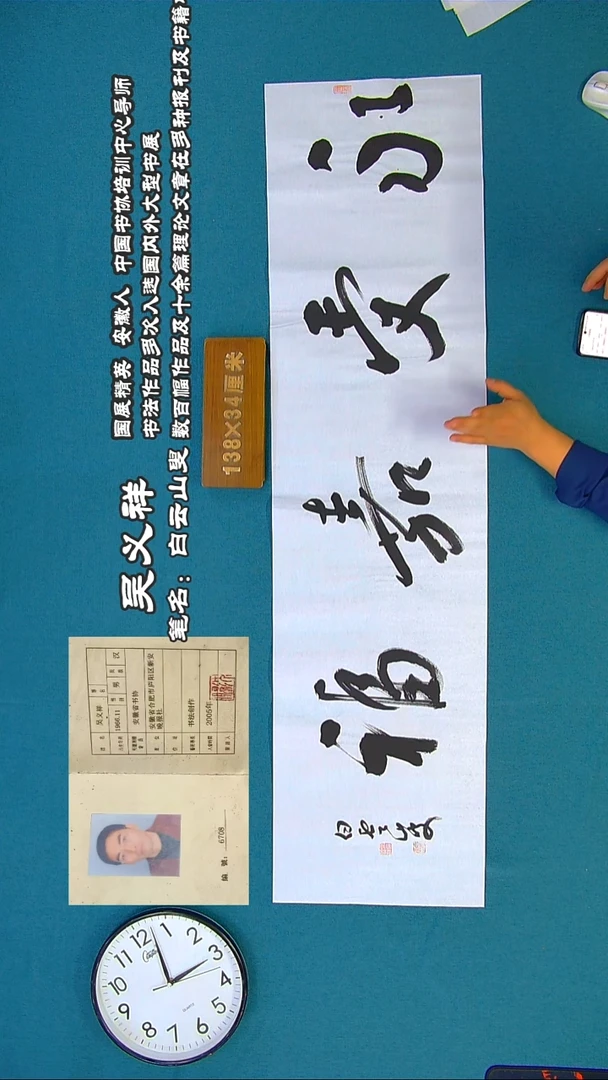 吴义祥 国展精英 安徽人 中国书协培训中心导师
书法作品多次入选国内外大型书展
笔名：白云山斐 数百幅作品及十余篇理论文章在多种报刊及书籍
138×34厘米
永受嘉福
白云山斐
吴义祥
1966.11 男 汉
安徽省书协
安徽省合肥市庐阳区新安
晚报社
书法创作
2005年
编号：6708
12 1 2 3 4 5 6 7 8 9 10 11
QUARTZ